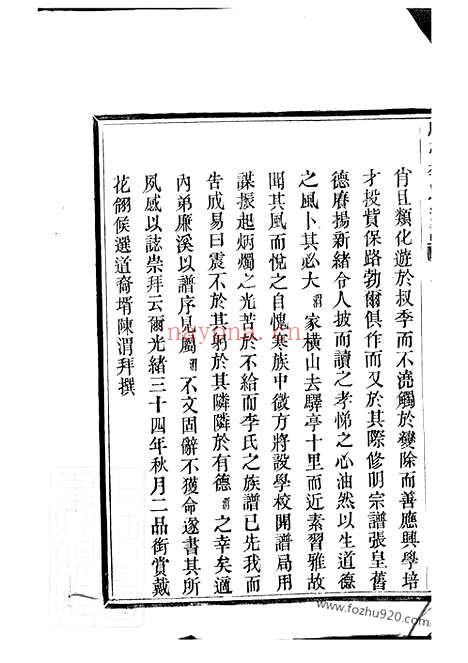 肯且類化遊於叔季而不澆觸於變除而善應興學培
才投貲保路勃爾俱作而又於其際修明宗譜張皇舊
德賡揚新緒令人披而讀之孝悌之心油然以生道德
之風卜其必大渭家橫山去驛亭十里而近素習雅故
聞其風而悅之自愧寒族中微方將設學校開譜局用
謀振起炳燭之光苦於不給而李氏之族譜已先我而
告成易曰震不於其躬於其隣隣於有德渭之幸矣適
內弟廉溪以譜序見屬渭不文固辭不獲命遂書其所
夙感以誌崇拜云爾光緒三十四年秋月二品銜賞戴
花翎候選道裔壻陳渭拜撰
nayona.cn
www.fozhu920.com